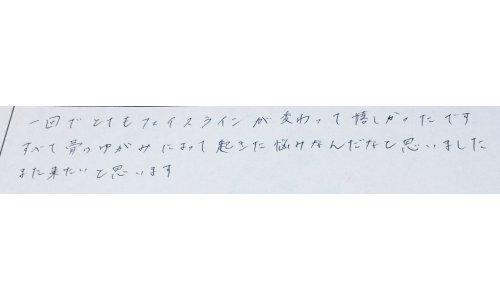 一回でとてもフェイスラインが変わって嬉しかったです
すべて骨のゆがみによって起きた悩みなんだなと思いました
また来たいと思います